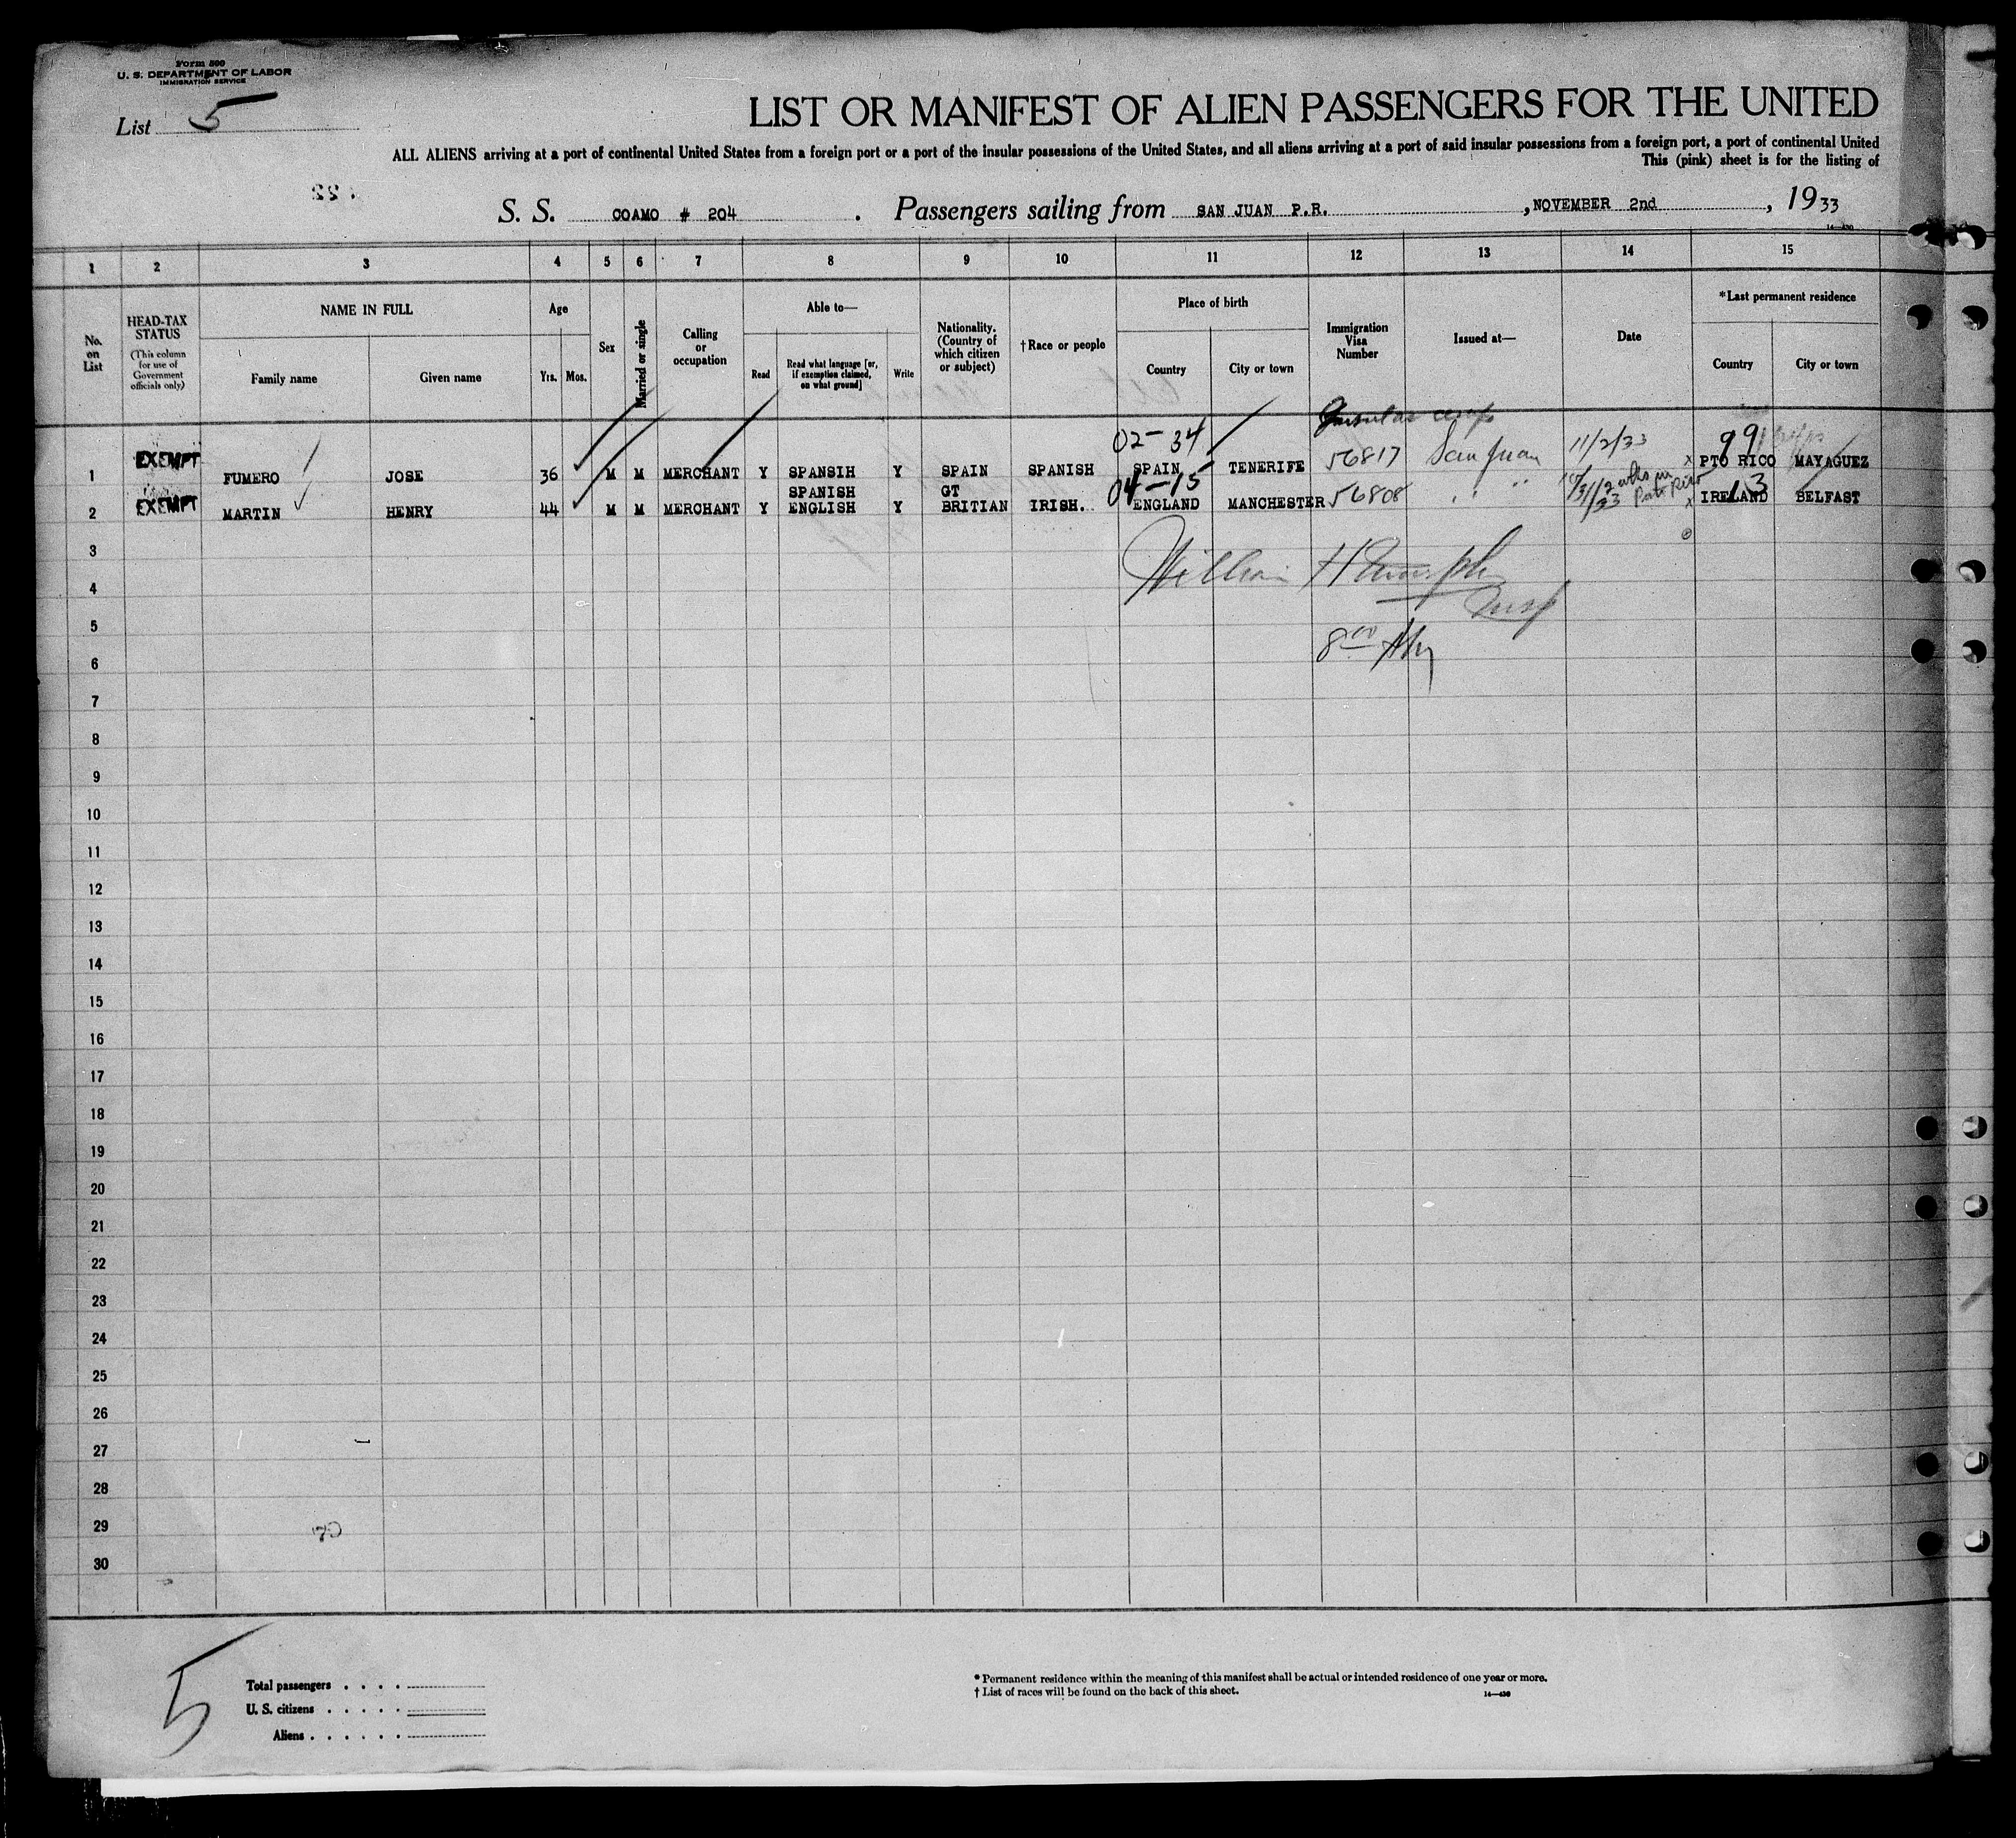 Form 500
U. S. DEPARTMENT OF LABOR
IMMIGRATION SERVICE
List 5
LIST OR MANIFEST OF ALIEN PASSENGERS FOR THE UNITED
ALL ALIENS arriving at a port of continental United States from a foreign port or a port of the insular possessions of the United States, and all aliens arriving at a port of said insular possessions from a foreign port, a port of continental United
This (pink) sheet is for the listing of
S. S. COAMO # 204 . Passengers sailing from SAN JUAN P.R. , NOVEMBER 2nd , 1933
14—430
1 2 3 4 5 6 7 8 9 10 11 12 13 14 15
No. on List
HEAD-TAX STATUS
(This column for use of Government officials only)
NAME IN FULL
Family name Given name
Age
Yrs. Mos.
Sex
Married or single
Calling or occupation
Able to—
Read
Read what language [or, if exemption claimed, on what ground]
Write
Nationality. (Country of which citizen or subject)
†Race or people
Place of birth
Country City or town
Immigration Visa Number
Issued at—
Date
*Last permanent residence
Country City or town
02-34 11/2/33 99
1 EXEMPT FUMERO JOSE 36 M M MERCHANT Y SPANSIH Y SPAIN SPANISH SPAIN TENERIFE 56817 San Juan x PTO RICO MAYAGUEZ
SPANISH GT 04-15 13
2 EXEMPT MARTIN HENRY 44 M M MERCHANT Y ENGLISH Y BRITIAN IRISH. ENGLAND MANCHESTER 56808 " " 10/31/33 x IRELAND BELFAST
3
William
4
Insp
5
8 00
6
7
8
9
10
11
12
13
14
15
16
17
18
19
20
21
22
23
24
25
26
27
28
29
30
5
Total passengers . . . .
U. S. citizens . . . . .
Aliens . . . . . .
* Permanent residence within the meaning of this manifest shall be actual or intended residence of one year or more.
† List of races will be found on the back of this sheet.
14—430